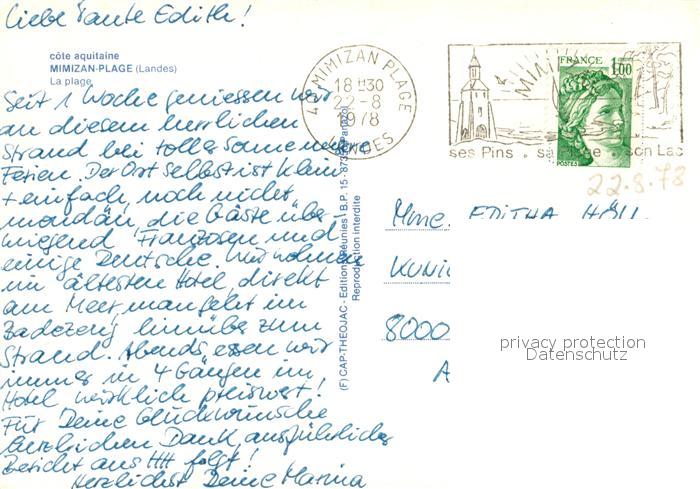 Liebe Tante Edith!
côte aquitaine
MIMIZAN-PLAGE (Landes)
La plage
Seit 1 Woche geniessen wir
an diesem herrlichen
Strand bei toller Sonne unsere
Ferien. Der Ort selbst ist klein
+ einfach, noch nicht
mondän, die Gäste über-
wiegend Franzosen und
einige Deutsche. Wir wohnen
im ältesten Hotel, direkt
am Meer, man geht im
Badezeug hinüber zum
Strand. Abends essen wir
immer in 4 Gängen im
Hotel wirklich preiswert!
Für Deine Glückwünsche
herzlichen Dank, ausführlicher
Bericht aus HH folgt!
Herzlichst Deine Marina
(F) CAP-THEOJAC - Edition Réunies - B.P. 15 - 873
Reproduction interdite
MIMIZAN PLAGE
18 H30
22-8
1978
LANDES
MIMI
ses Pins . sa Plage . son Lac
FRANCE
1,00
POSTES
22.8.78
Mme. EDITHA
8000
A
privacy protection
Datenschutz